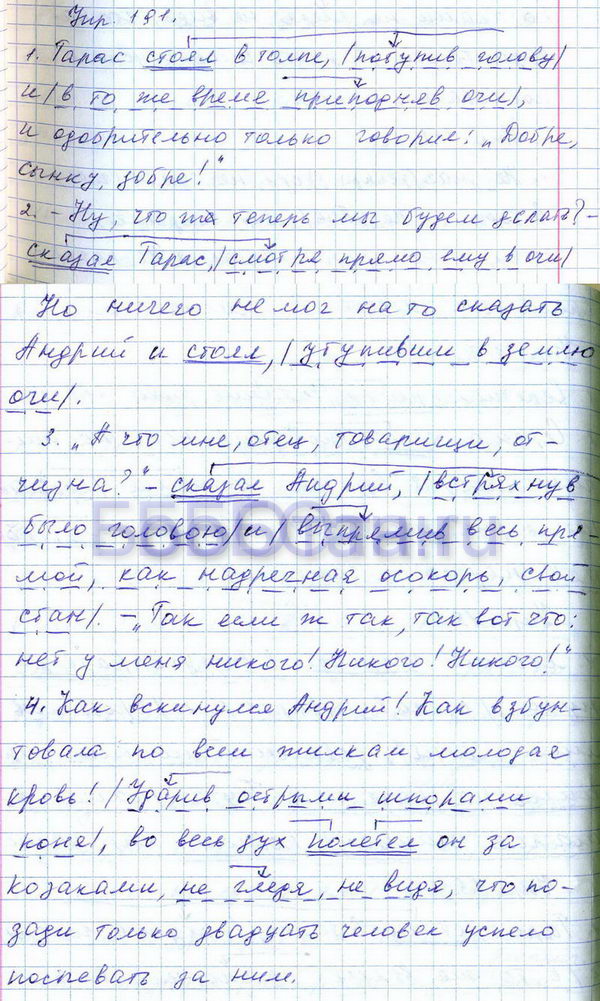 Упр. 191.
1. Тарас стоял в толпе, |потупив голову|
и |в то же время приподняв очи|,
и одобрительно только говорил: „Добре,
сынку, добре!"
2. – Ну, что же теперь мы будем делать? –
сказал Тарас, |смотря прямо ему в очи|
Но ничего не мог на то сказать
Андрий и стоял, |утупивши в землю
очи|.
3. „А что мне, отец, товарищи, от-
чизна?" – сказал Андрий, |встряхнув
было головою| и |выпрямив весь пря-
мой, как надречная осокорь, свой
стан|. – „Так если ж так, так вот что:
нет у меня никого! Никого! Никого!"
4. Как вскинулся Андрий! Как взбун-
товала по всем жилкам молодая
кровь! |Ударив острыми шпорами
коня|, во весь дух полетел он за
козаками, не глядя, не видя, что по-
зади только двадцать человек успело
поспевать за ним.